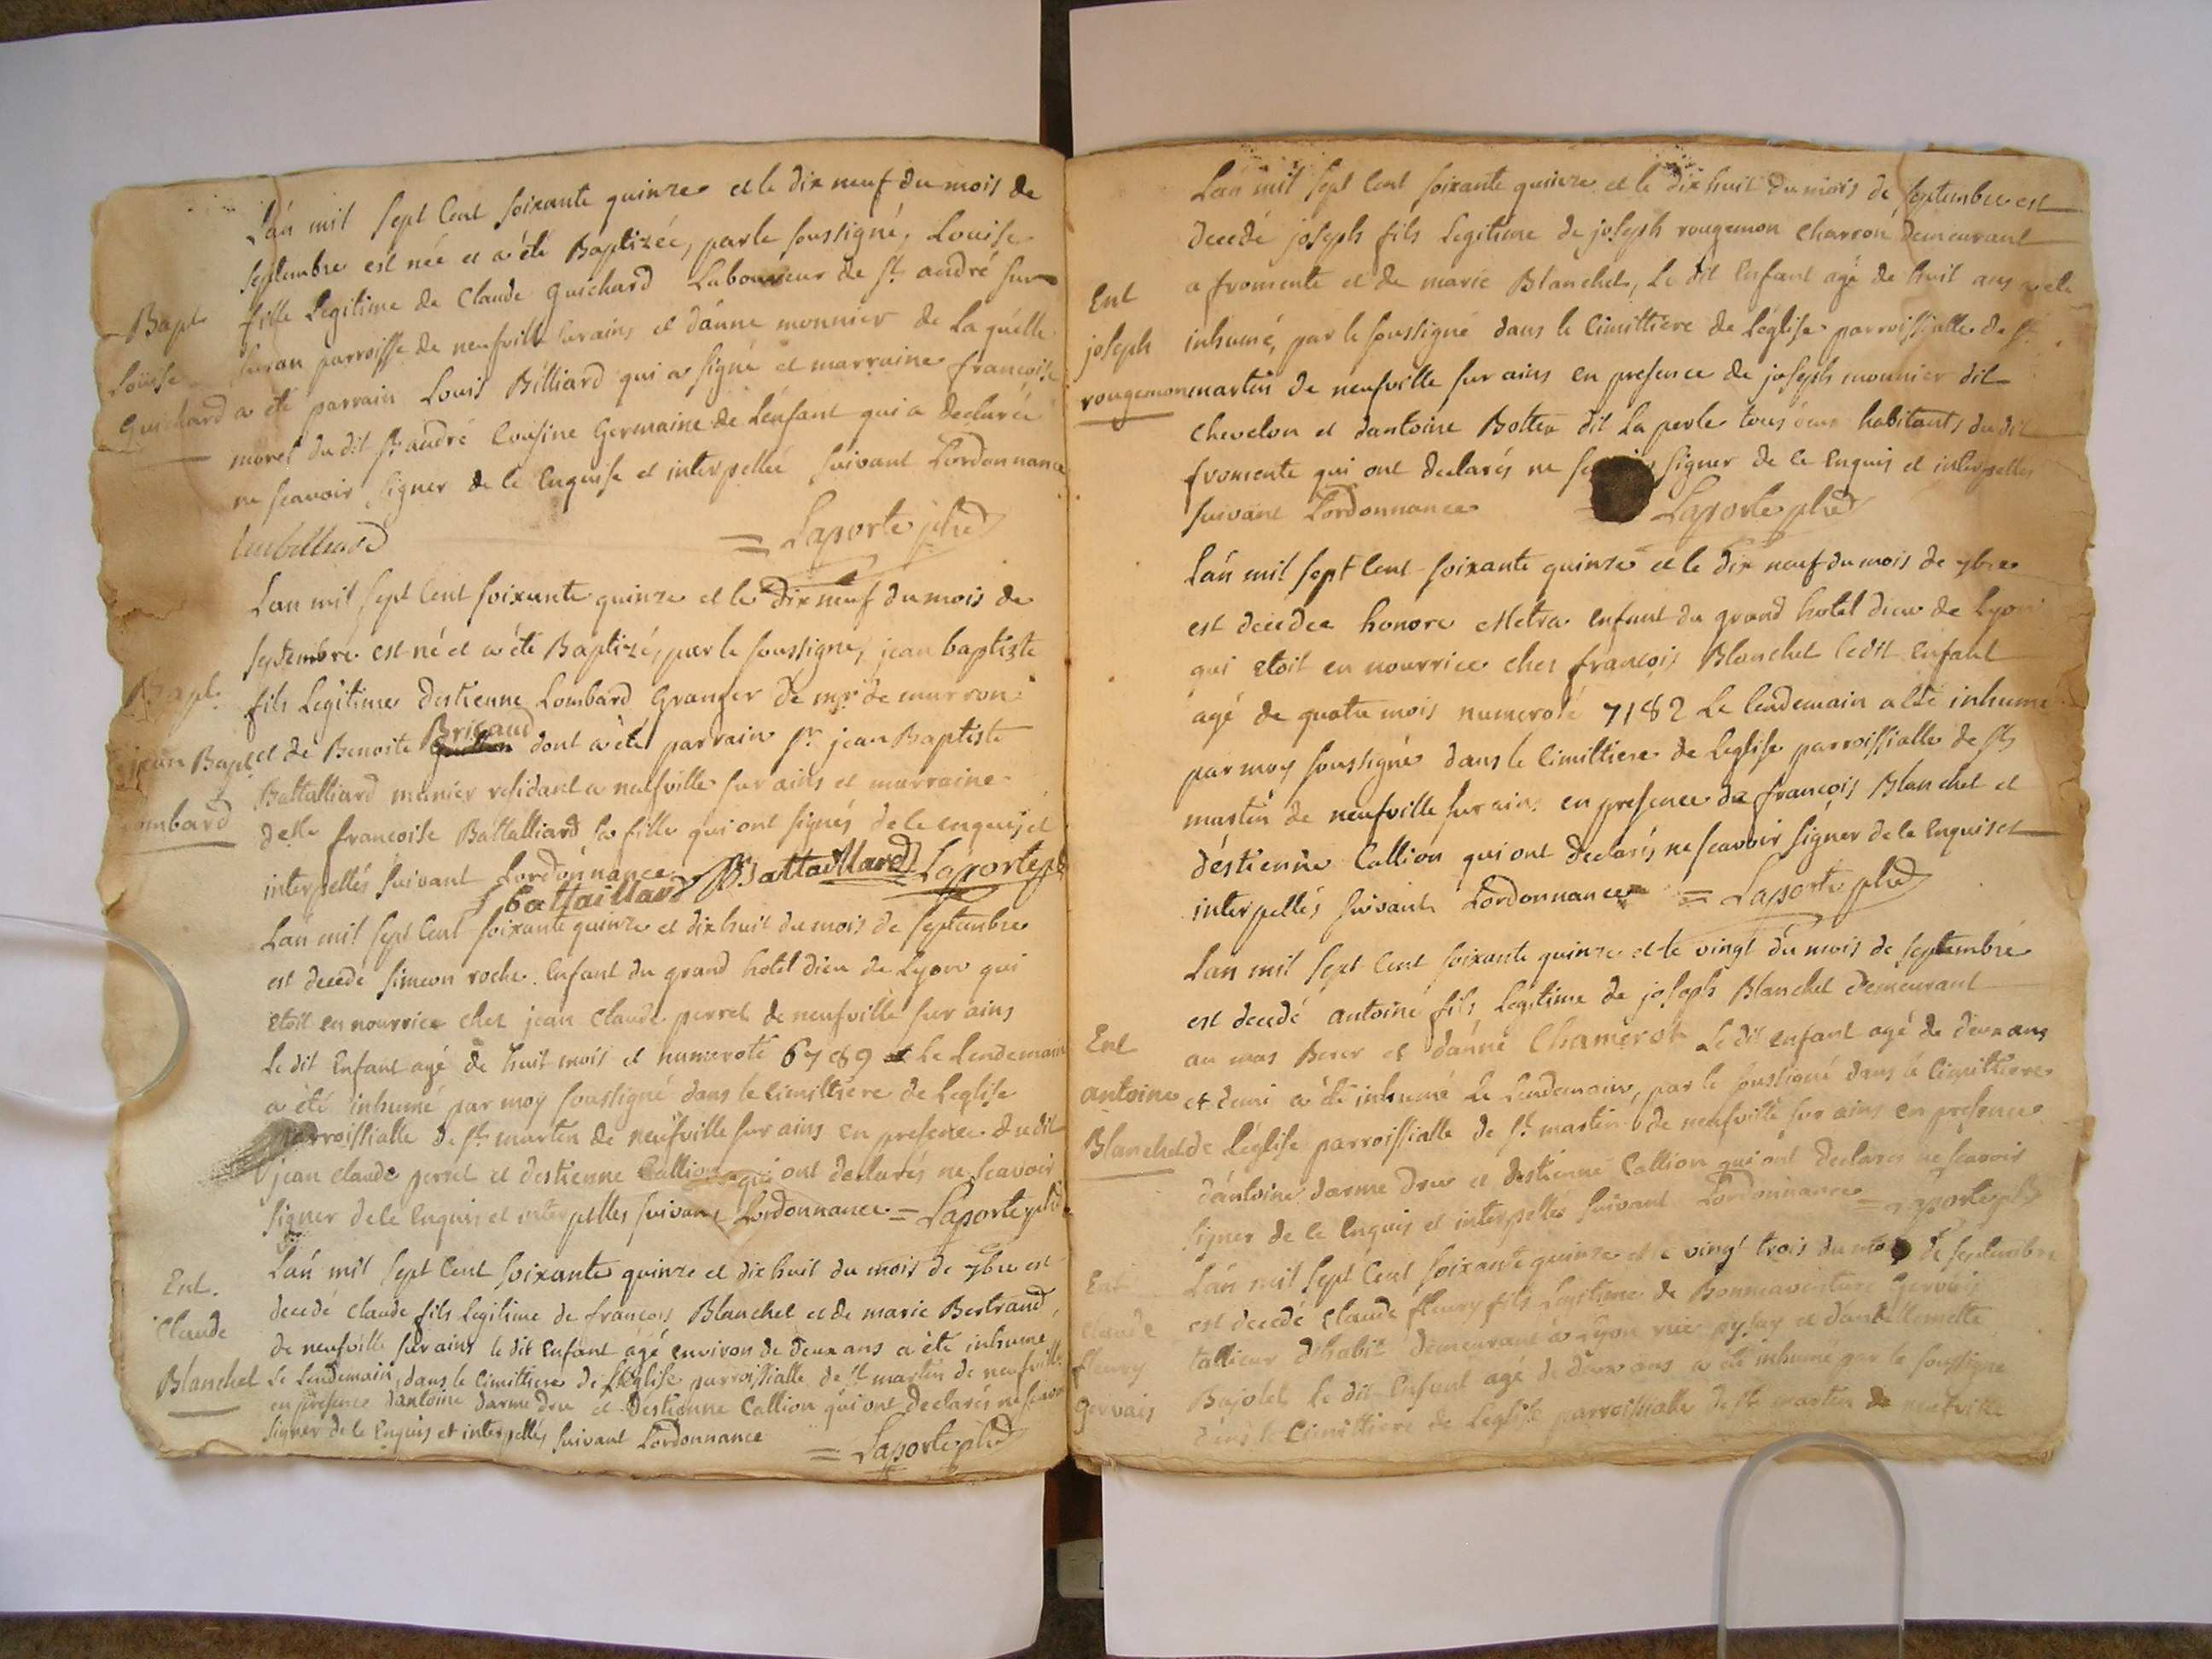 L'an mil sept cent soixante quinze et le dix neuf du mois de
septembre est née et a été Baptizée, par le soussigné, Louise
fille Legitime de Claude Guichard Laboureur de St andré sur
suran parroisse de neufville sur ains et d'anne monnier de Laquelle
a été parrain Louis Billiard qui a signé et marraine françoise
morel du dit St andré Cousine Germaine de L'enfant qui a declarée
ne sçavoir signer de ce Enquise et interpellée suivant L'ordonnance
= Laporte ptre
Bapt.
Loüise
Guichard
L'an mil sept cent soixante quinze et le dix neuf du mois de
septembre est né et a été Baptizé, par le soussigné, jean baptiste
fils Legitime destienne Lombard Granger de mr de murron
et de Benoite Brigaud dont a été parrain Sr jean Baptiste
Battalliard munier residant a neufville sur ains et marraine
delle francoise Battalliard sa fille qui ont signés de ce enquis et
interpellés suivant Lordonnance
f battaillard Battaillard Laporte ptre
Bapt.
jean Bapt.
Lombard
L'an mil sept Cent soixante quinze et dix huit du mois de septembre
est decedé simeon roche Enfant du grand hotel dieu de Lyon qui
etoit en nourrice chez jean claude perret de neufville sur ains
le dit Enfant agé de huit mois et numeroté 6789 Le Lendemain
a été inhumé par moy soussigné dans le cimittiere de Leglise
parroissialle de St martin de neufville sur ains en presence du dit
jean claude perret et destienne Callion qui ont declarés ne sçavoir
signer de ce Enquis et interpelles suivant Lordonnance = Laporte ptre
L'an mil sept Cent soixante quinze et dix huit du mois de 7bre est
decedé claude fils legitime de francois Blanchet et de marie Bertrand,
de neufville sur ains le dit Enfant agé environ de deux ans a été inhumé
Le Lendemain, dans le cimittiere de L'Eglise parroissialle de St martin de neufville
en presence dantoine darme dru et destienne Callion qui ont declarés ne sçavoir
signer de ce Enquis et interpellés suivant Lordonnance
= Laporte ptre
Ent.
Claude
Blanchet
L'an mil sept Cent soixante quinze et le dix huit du mois de septembre est
decedé joseph fils Legitime de joseph rougemon charron demeurant
a fromente et de marie Blanchet, Le dit Enfant agé de huit ans a ete
inhumé, par le soussigné dans le cimittiere de L'église parroissialle de St
martin de neufville sur ains en presence de joseph monnier dit
chevelon et dantoine Bottex dit La perle tous deux habitants du dit
fromente qui ont declarés ne signer de ce Enquis et interpelles
suivant L'ordonnance Laporte ptre
Ent
joseph
rougemon
L'an mil sept Cent soixante quinze et le dix neuf du mois de 7bre
est decedee honore Metra enfant du grand hotel dieu de Lyon
qui etoit en nourrice ches françois Blanchet ledit Enfant
agé de quatre mois numeroté 7182 Le lendemain a été inhumé
par moy soussigné dans le cimittiere de Leglise parroissialle de St
martin de neufville sur ains en presence de françois Blanchet et
déstienne Callion qui ont declarés ne sçavoir signer de ce Enquis et
interpellés suivant Lordonnance = Laporte ptre
L'an mil sept Cent soixante quinze et le vingt du mois de septembre
est decedé antoine fils Legitime de joseph Blanchet demeurant
au mas Berer et d'anne Chamerot Le dit enfant agé de deux ans
et demi a été inhumé Le Lendemain, par le soussigné dans le cimittiere
de L'église parroissialle de St martin de neufville sur ains en presence
d'antoine darme dru et destienne Callion qui ont declarés ne sçavoir
signer de ce Enquis et interpellés suivant Lordonnance = Laporte ptre
Ent
antoine
Blanchet
L'an mil sept Cent soixante quinze et le vingt trois du mois de septembre
est decedé claude fleury fils Legitime de Bonnaventure Gervais
tallieur dhabit demeurant a Lyon rue
Bajolet le dit Enfant agé de deux ans a été inhumé par le soussigné
dans le cimittiere de Leglise parroissialle de St martin de neufville
Ent
claude
fleury
Gervais